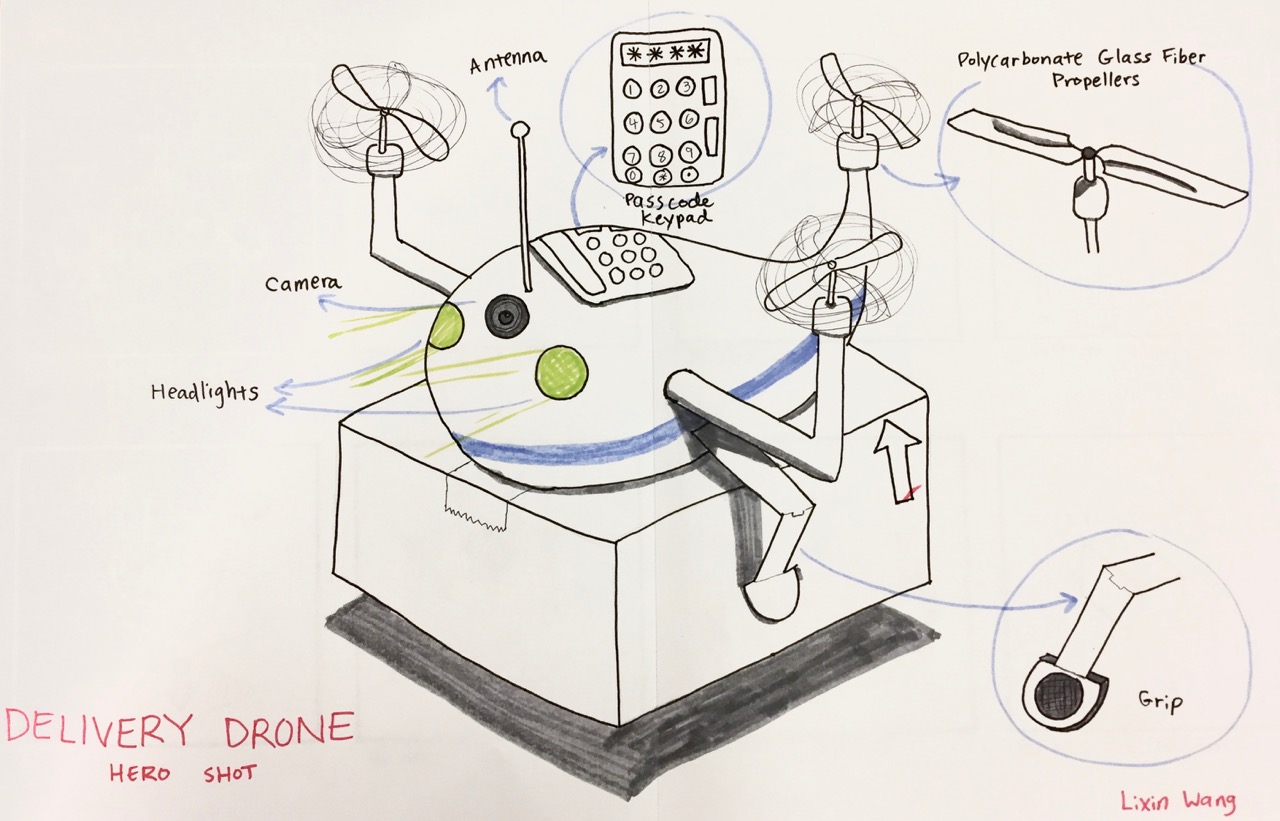 Antenna
* * * *
1 2 3
4 5 6
7 8 9
0 * •
Passcode
Keypad
Polycarbonate Glass Fiber
Propellers
Camera
Headlights
Grip
DELIVERY DRONE
HERO SHOT
Lixin Wang